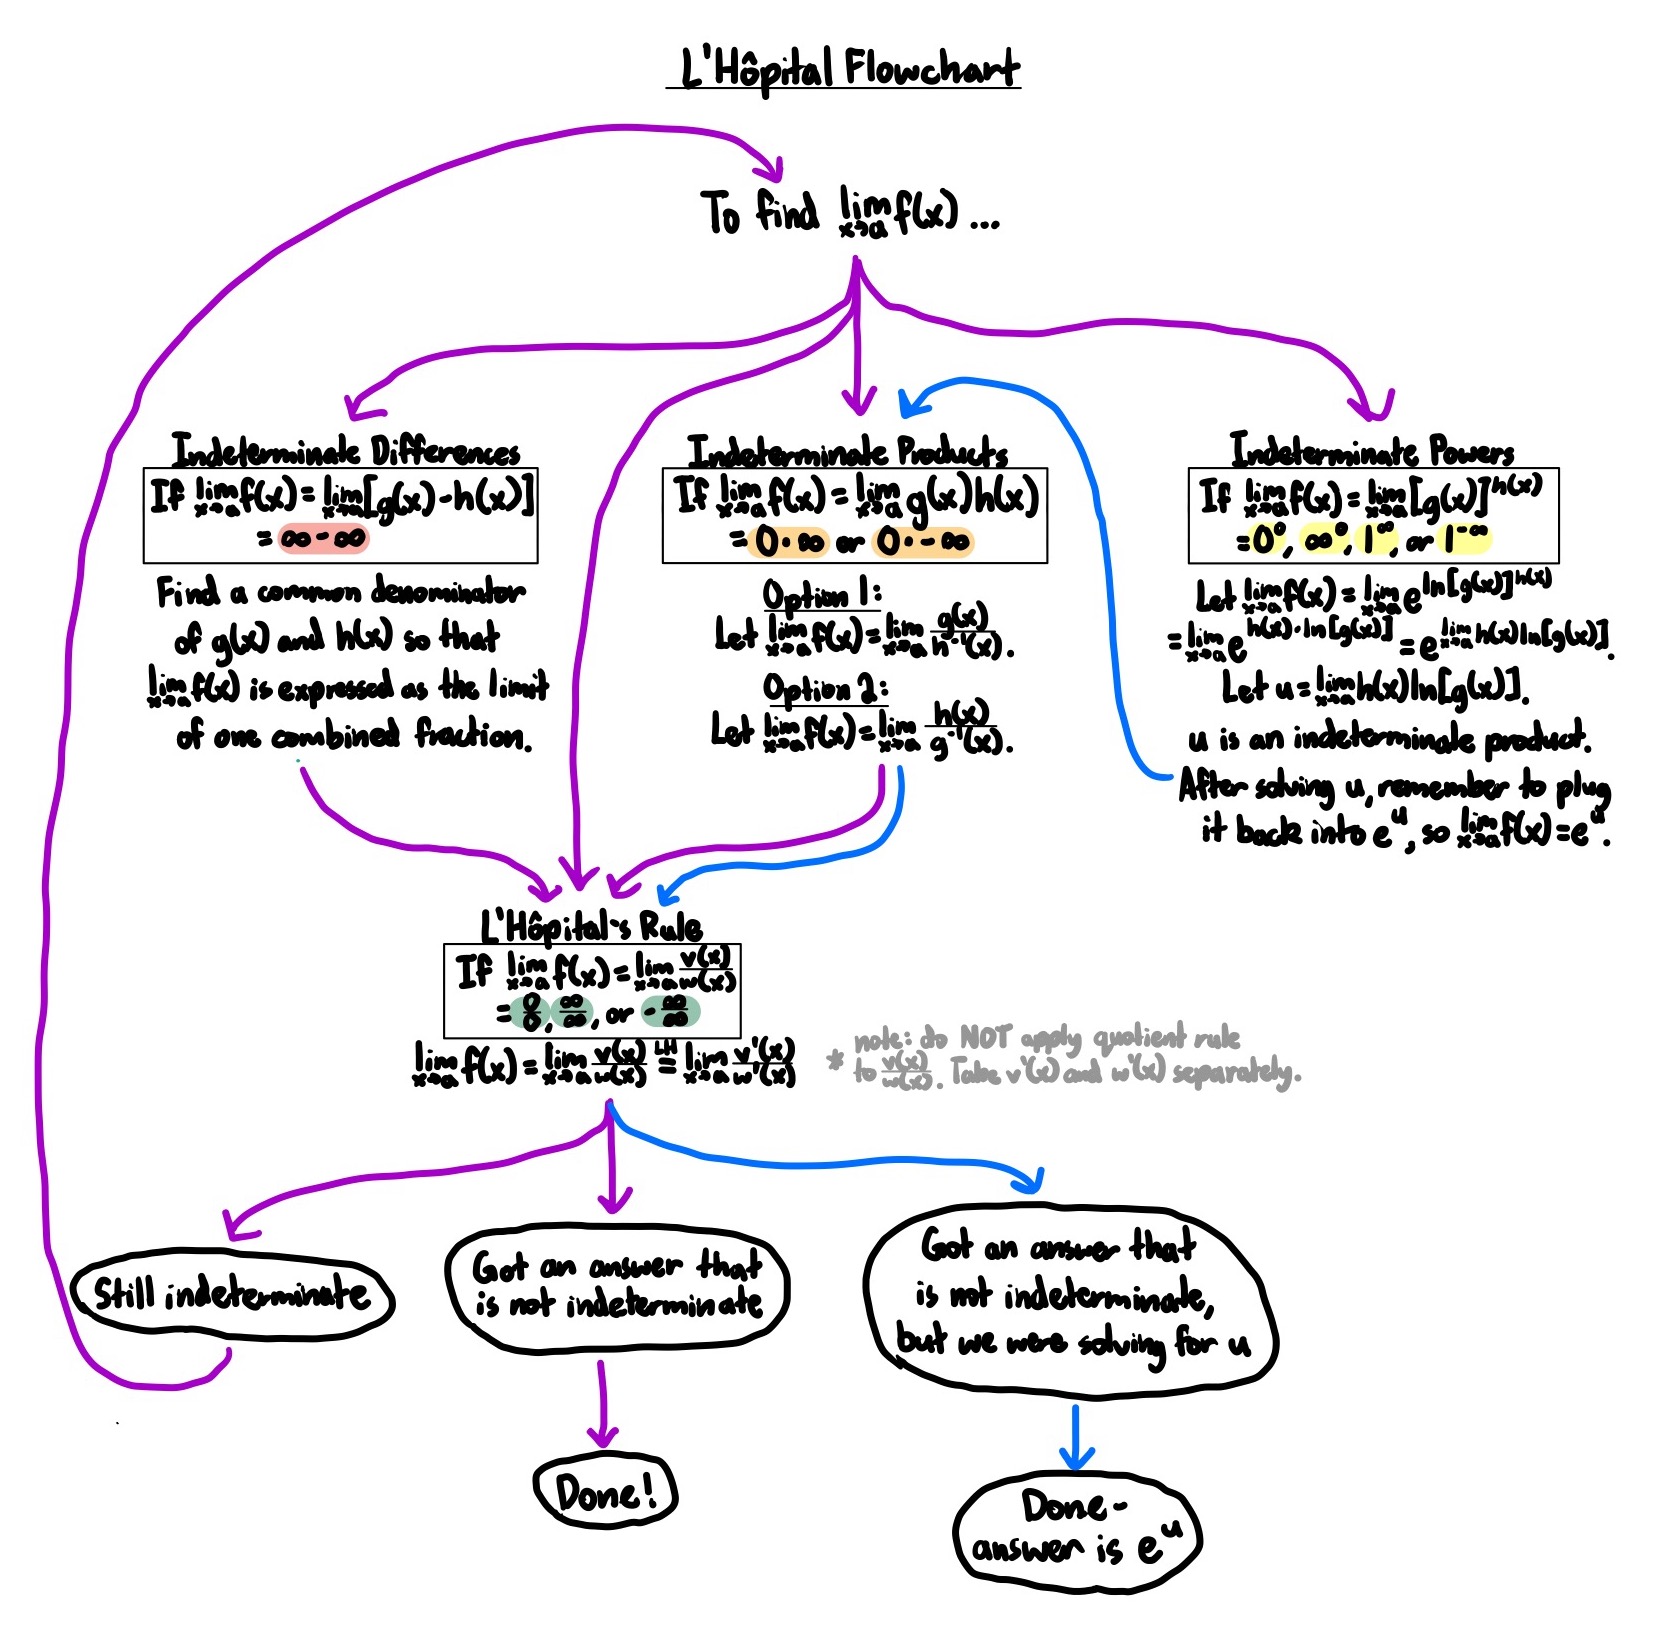 L'Hôpital Flowchart
To find lim x→a f(x) ...
Indeterminate Differences
If lim x→a f(x) = lim x→a [g(x) - h(x)]
= ∞ - ∞
Find a common denominator
of g(x) and h(x) so that
lim x→a f(x) is expressed as the limit
of one combined fraction.
Indeterminate Products
If lim x→a f(x) = lim x→a g(x)h(x)
= 0·∞ or 0·-∞
Option 1:
Let lim x→a f(x) = lim x→a g(x)/h⁻¹(x).
Option 2:
Let lim x→a f(x) = lim x→a h(x)/g⁻¹(x).
Indeterminate Powers
If lim x→a f(x) = lim x→a [g(x)]^h(x)
= 0⁰, ∞⁰, 1^∞, or 1^-∞
Let lim x→a f(x) = lim x→a e^ln[g(x)]^h(x)
= lim x→a e^h(x)·ln[g(x)] = e^lim x→a h(x)ln[g(x)].
Let u = lim x→a h(x)ln[g(x)].
u is an indeterminate product.
After solving u, remember to plug
it back into e^u, so lim x→a f(x) = e^u.
L'Hôpital's Rule
If lim x→a f(x) = lim x→a v(x)/w(x)
= 0/0, ∞/∞, or -∞/∞
lim x→a f(x) = lim x→a v(x)/w(x) =^LH lim x→a v'(x)/w'(x)
* note: do NOT apply quotient rule
to v(x)/w(x). Take v'(x) and w'(x) separately.
Still indeterminate
Got an answer that
is not indeterminate
Got an answer that
is not indeterminate,
but we were solving for u
Done!
Done-
answer is e^u